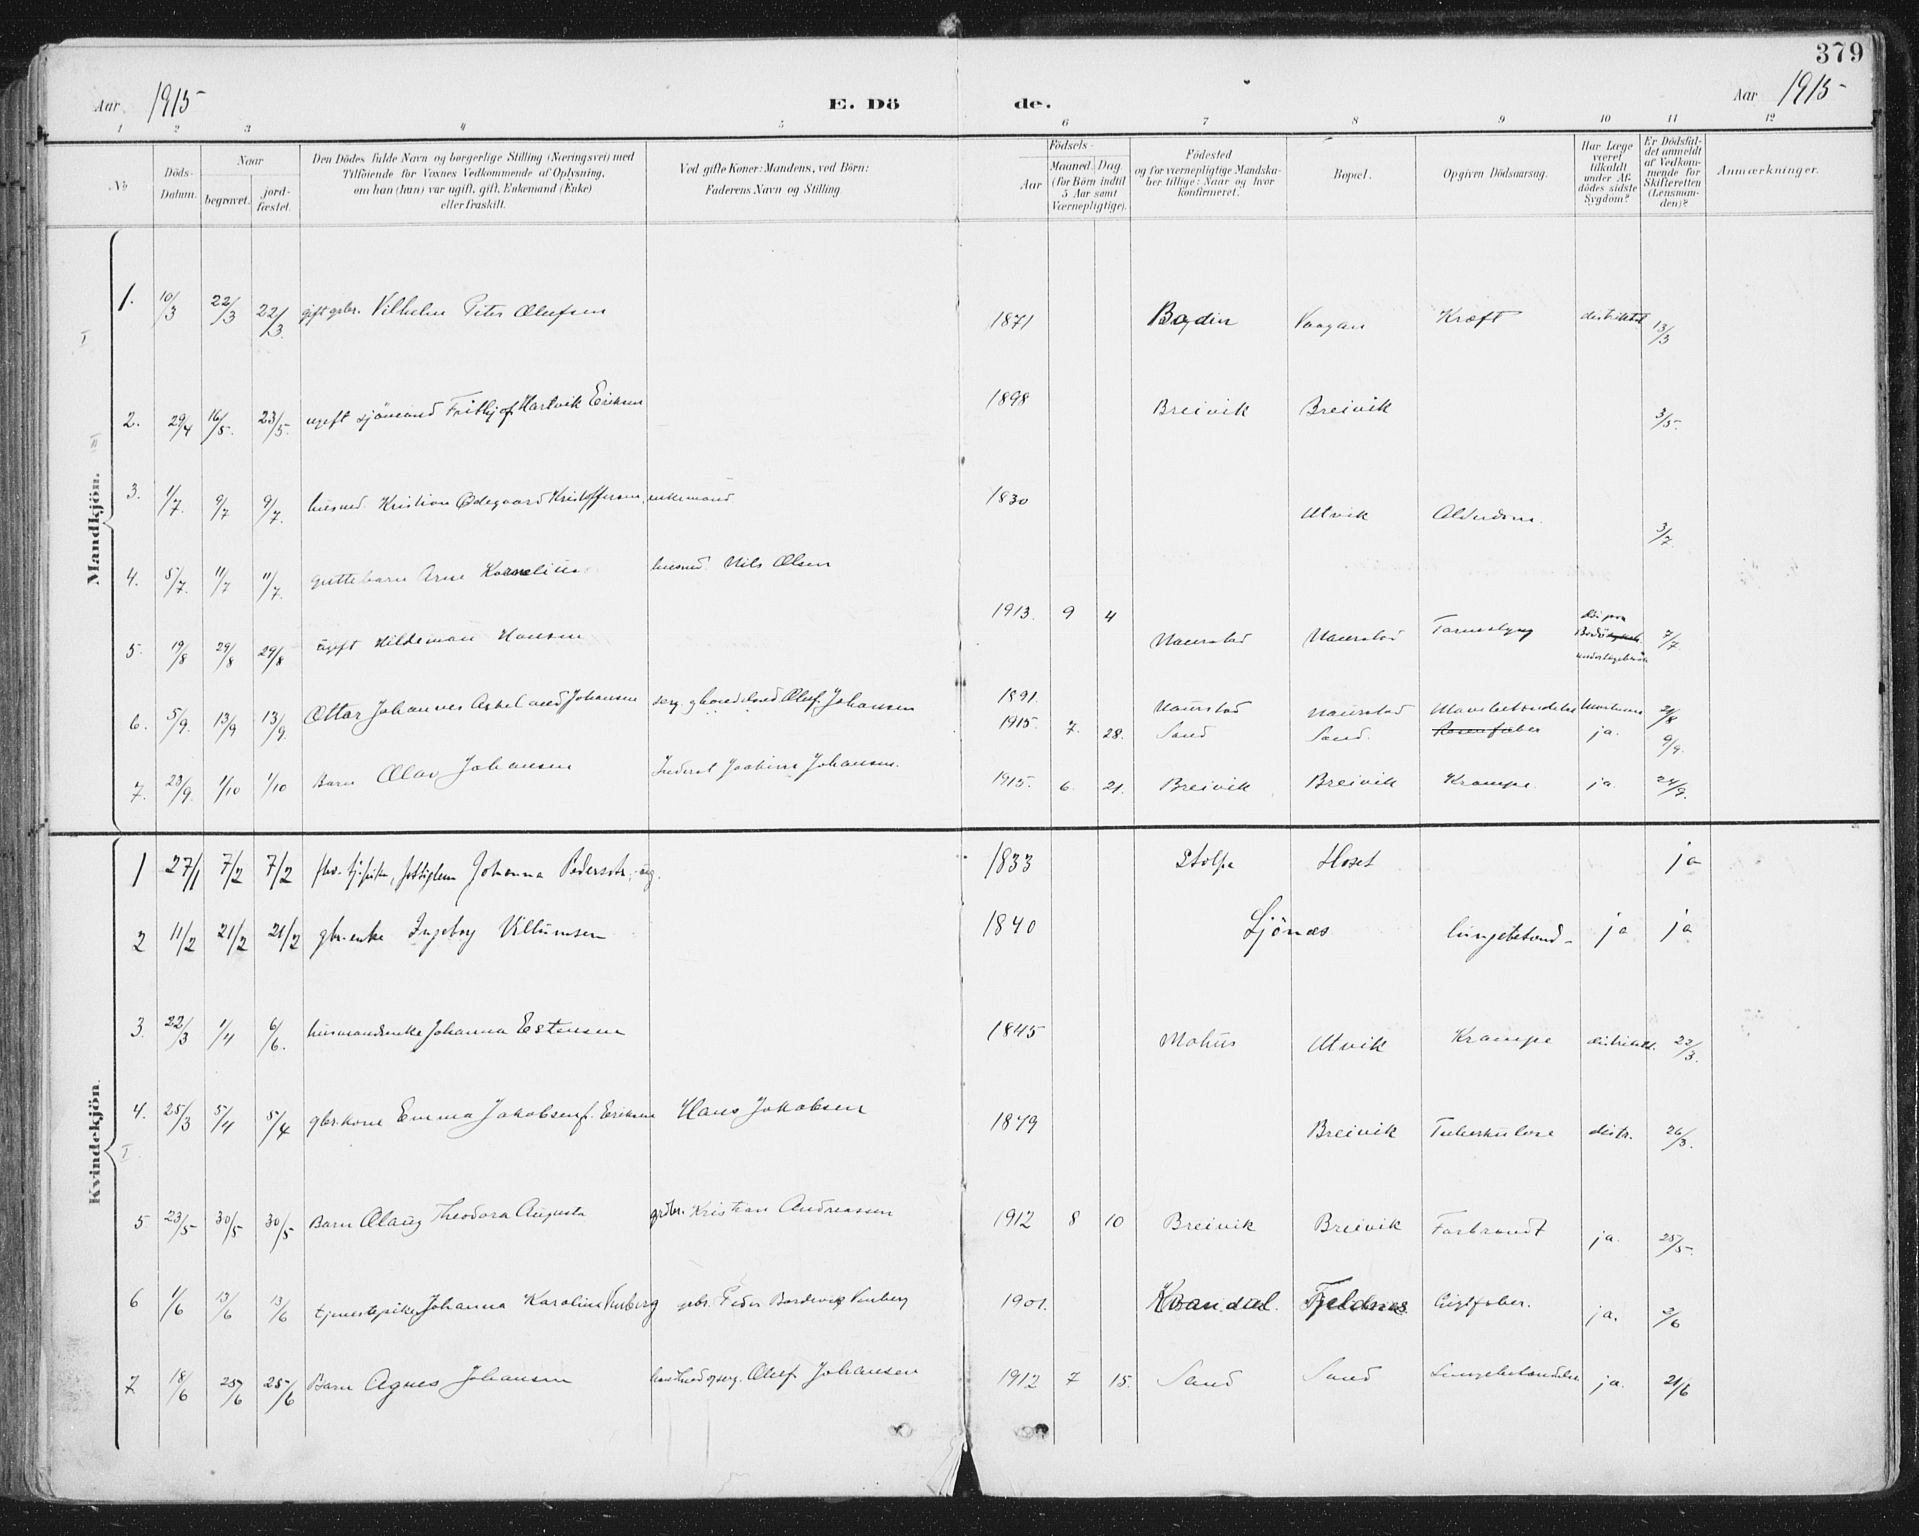 379
Aar 1915
E. Dö de.
Aar 1915
1 2 3 4 5 6 7 8 9 10 11 12
No
Döds-Datum.
Naar
begravet.
jord-fæstet.
Den Dödes fulde Navn og borgerlige Stilling (Næringsvei) med
Tilföiende for Voxnes Vedkommende af Oplysning,
om han (hun) var ugift, gift, Enkemand (Enke)
eller fraskilt.
Ved gifte Koner: Mandens, ved Börn:
Faderens Navn og Stilling.
Födsels-
Aar
Maaned. Dag.
(for Börn indtil
5 Aar samt
Værnepligtige).
Födested
og for værnepligtige Mandska-
ber tillige: Naar og hvor
konfirmeret.
Bopæl.
Opgiven Dödsaarsag.
Har Læge
været
tilkaldt
under Af-
dödes sidste
Sygdom?
Er Dödsfal-
det anmeldt
af Vedkom-
mende for
Skifteretten
(Lensman-
den)?
Anmærkninger.
Mandkjön.
1. 10/3 22/3 22/3 gift gbr. Vilhelm Peter Olufsen 1871 Bodin Vaagan Kræft distriktsl 13/3
2. 29/4 16/5. 23/5. ugift sjömand Frithjof Hartvik Eriksen 1898 Breivik Breivik 3/5.
3. 1/7. 9/7 9/7. husmd. Kristian Ødegaard Kristoffersen, enkemand 1830 Utvik Alderdom. 3/7.
4. 5/7. 11/7 11/7. guttebarn Arne Kornelius husmd. Nils Olsen 1913. 9 4 Naurstad Naurstad 7/7.
5. 19/8 29/8 29/8 ugift Hildeman Hansen 1891. Naurstad Naurstad 21/8
6. 5/9. 13/9 13/9. Ottar Johannes Johansen Oluf Johansen 1915. 7. 28. Sand Sand. ja. 9/9.
7. 23/9. 1/10 1/10 Barn Olav Johansen Inderst Johansen. 1915. 6. 21. Breivik Breivik Krampe. ja. 24/9.
Kvindekjön.
1 27/1 7/2 7/2 Johanna Pedersdtr., ug. 1833 Stolpe Hoset ja
2 11/2 21/2 21/2 gbr.enke Ingeborg Villumsen 1840 Ljönæs lungebetænd- ja ja
3. 22/3 1/4 6/6. husmandsenke Johanna Estensen 1845 Mohus Utvik Krampe distriktsl. 22/3.
4. 25/3 5/4 5/4 gbr.kone Emma Jakobsen f. Eriksen Hans Jakobsen 1849 Breivik Tuberkulose distr. 26/3.
5 23/5 30/5 30/5 Barn Olaug Theodora Augusta grdbr. Kristian Andreassen 1912 8 10 Breivik Breivik Forbrændt ja. 25/5.
6 1/6 13/6 13/6 tjenestepike Johanna Karoline gbr. Peder 1901. Kvandal. Fjeldnes Gigtfeber. ja. 2/6
7 18/6 25/6 25/6 Barn Agnes Johansen Oluf Johansen 1912 7 15. Sand Sand Lungebetændelse ja. 21/6